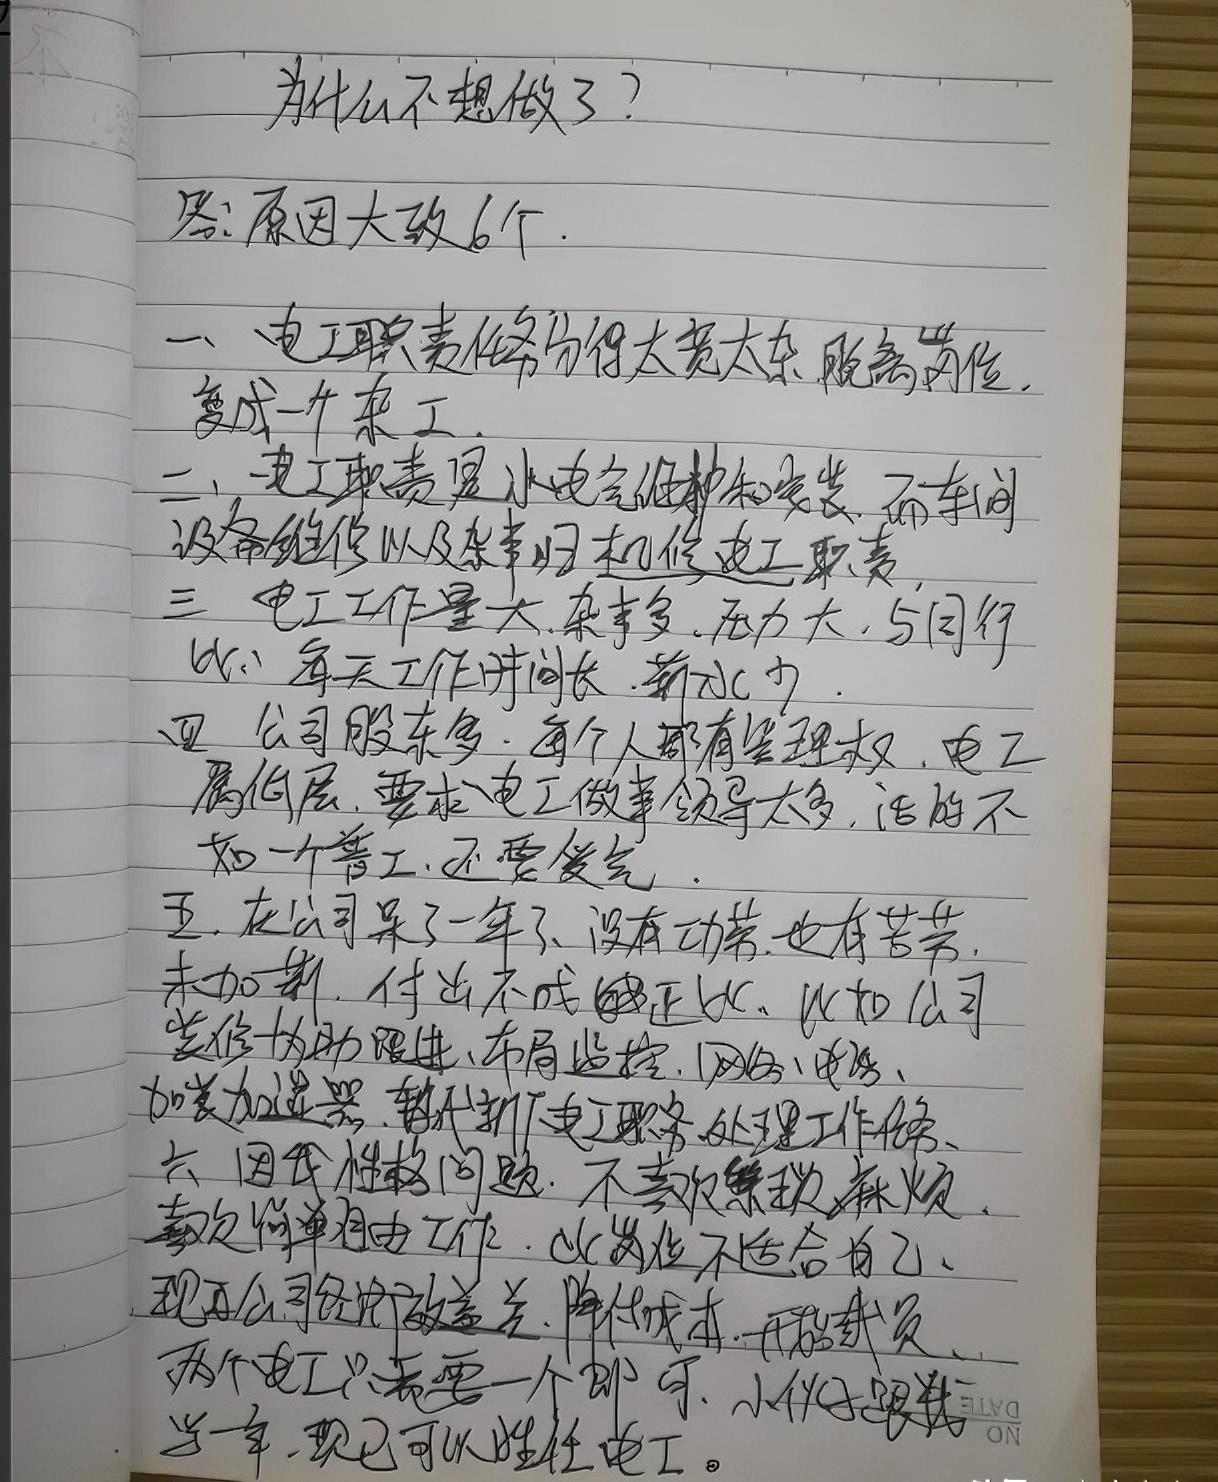 为什么不想做了?
答:原因大致6个.
一、电工职责任务分得太宽太杂,脱离岗位.
变成一个杂工.
二、电工职责是水电气维护和安装.而车间
设备维修以及杂事归机修电工职责,
三 电工工作量大、杂事多.压力大.与同行
比、每天工作时间长.薪水少.
四 公司股东多.每个人都有管理权.电工
属低层.要求电工做事领导太多.活的不
如一个普工.还要受气.
五.在公司呆了一年了、没有功劳.也有苦劳.
未加薪.付出不成正比、比如公司
装修协助跟进、布局监控、网络、电路、
加装加湿器、暂代新厂电工职务处理工作任务、
六 因我性格问题.不喜欢繁琐麻烦.
喜欢简单自由工作.此岗位不适合自己、
现在公司经济效益差.降低成本.开始裁员、
两个电工只需要一个即可.小伙子跟我
学一年.现已可以胜任电工。
DATE
NO